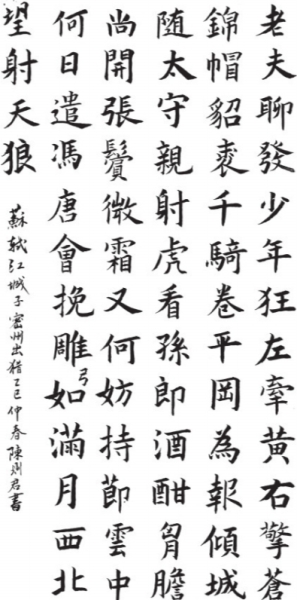 老夫聊發少年狂左牽黃右擎蒼
錦帽貂裘千騎卷平岡為報傾城
随太守親射虎看孫郎酒酣胷膽
尚開張鬢微霜又何妨持節雲中
何日遣馮唐會挽雕弓如滿月西北
望射天狼
蘇軾江城子密州出猎乙巳仲春陳則君書